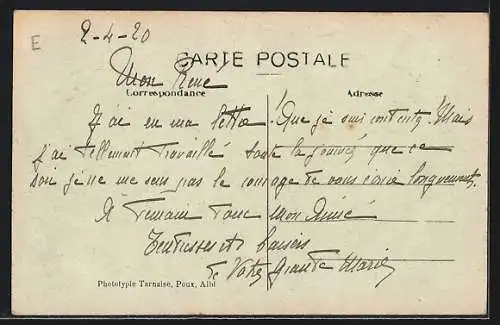 E
2-4-20
CARTE POSTALE
Mon René
Correspondance
Adresse
J'ai eu ma lettre ! Que je suis contente. Mais
j'ai tellement travaillé toute la journée que ce
soir je ne me sens pas le courage de vous écrire longuement.
À demain donc mon Aimé
Tendresses et baisers
de Votre grande Marie
Phototypie Tarnaise, Poux, Albi